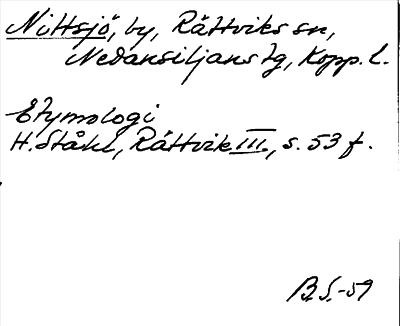 Nittsjö, by, Rättviks sn,
Nedansiljans tg, Kopp. l.
Etymologi
H. Ståhl, Rättvik III, s. 53 f.
B.S.-59